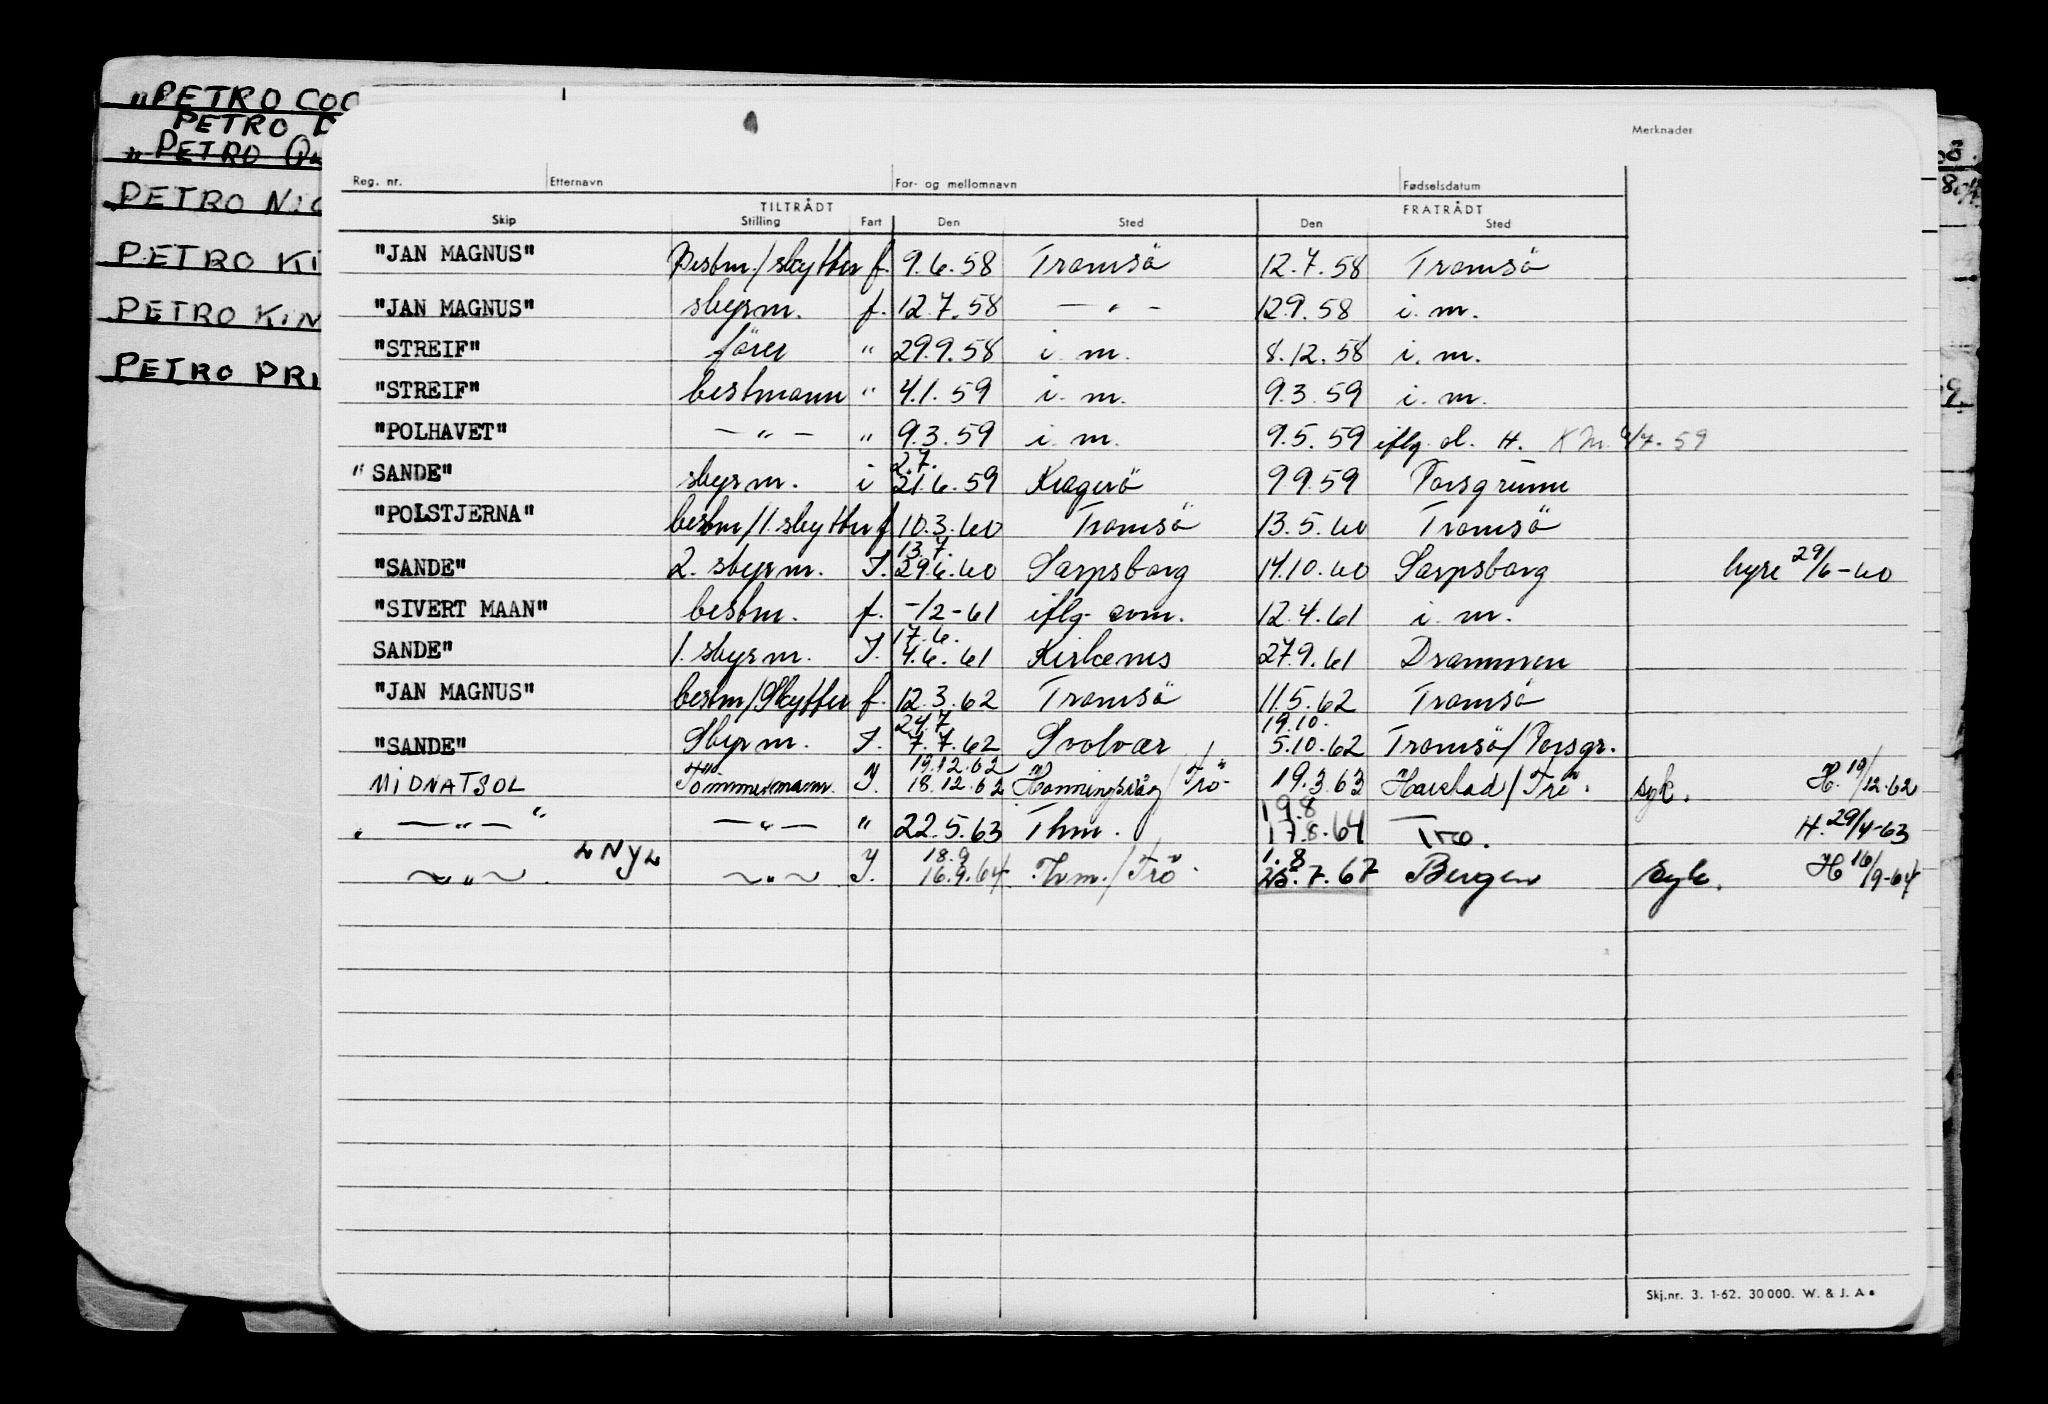 "PETRO COO
PETRO D
"PETRO
PETRO NIC
PETRO KI
PETRO KIN
PETRO PRI
Merknader
Reg. nr. Etternavn For- og mellomnavn Fødselsdatum
TILTRÅDT FRATRÅDT
Skip Stilling Fart Den Sted Den Sted
"JAN MAGNUS" Bestm./skytter f. 9.6.58 Tromsö 12.7.58 Tromsö
"JAN MAGNUS" styrm. f. 12.7.58 — " — 12.9.58 i. m.
"STREIF" förer " 29.9.58 i. m. 8.12.58 i. m.
"STREIF" bestmann " 4.1.59 i. m. 9.3.59 i. m.
"POLHAVET" — " — " 9.3.59 i. m. 9.5.59 iflg. d. H. KM. /7.59
2.7.
"SANDE" styrm. i 21.6.59 Kragerö 9.9.59 Porsgrunn
"POLSTJERNA" bestm/1.skytter f 10.3.60 Tromsö 13.5.60 Tromsö
13.7.
"SANDE" 2. styrm. I. 29.6.60 Sarpsborg 14.10.60 Sarpsborg hyre 29/6-60
"SIVERT MAAN" bestm. f. -/2-61 iflg. om. 12.4.61 i. m.
17.6.
SANDE" 1. styrm. I. 4.6.61 Kirkenes 27.9.61 Drammen
"JAN MAGNUS" bestm/Skytter f. 12.3.62 Tromsö 11.5.62 Tromsö
24.7 19.10.
"SANDE" Styrm. I. 7.7.62 Svolvær 5.10.62 Tromsö/Porsgr.
19.12.62
MIDNATSOL Tömmermann. I. 18.12.62 Honningsvåg/Trö 19.3.63 Harstad/Trö. syk. H. 19/12.62
19.8
" — " — " — " — " 22.5.63 Thm. 17.8.64 Trö. H. 29/4-63
"NY" 18.9 1.8
~ " ~ ~ " ~ I. 16.9.64 Thm./Trö 25.7.67 Bergen syk. H 16/9-64
Skj.nr. 3. 1-62. 30000. W. & J. A